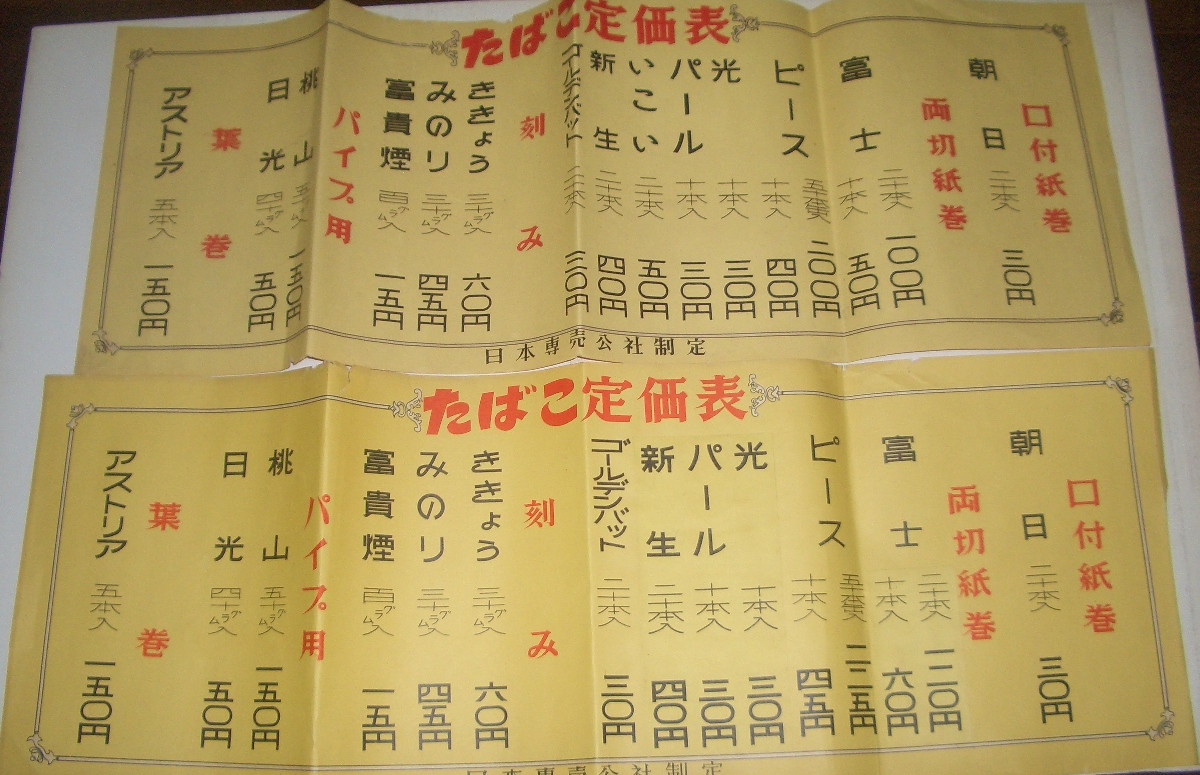 たばこ定価表
口付紙巻
朝日 二十本入 三〇円
両切紙巻
富士 二十本入 一〇〇円
十本入 五〇円
ピース 五十本入 二〇〇円
十本入 四〇円
光 十本入 三〇円
パール 十本入 三〇円
いこい 二十本入 五〇円
新生 二十本入 四〇円
ゴールデンバット 二十本入 三〇円
刻み
ききょう 三十グラム入 六〇円
みのり 三十グラム入 四五円
富貴煙 百グラム入 一五円
パイプ用
桃山 五十グラム入 一五〇円
日光 四十グラム入 五〇円
葉巻
アストリア 五本入 一五〇円
日本専売公社制定
たばこ定価表
口付紙巻
朝日 二十本入 三〇円
両切紙巻
富士 二十本入 一二〇円
十本入 六〇円
ピース 五十本入 二二五円
十本入 四五円
光 十本入 三〇円
パール 十本入 三〇円
新生 二十本入 四〇円
ゴールデンバット 二十本入 三〇円
刻み
ききょう 三十グラム入 六〇円
みのり 三十グラム入 四五円
富貴煙 百グラム入 一五円
パイプ用
桃山 五十グラム入 一五〇円
日光 四十グラム入 五〇円
葉巻
アストリア 五本入 一五〇円
日本専売公社制定